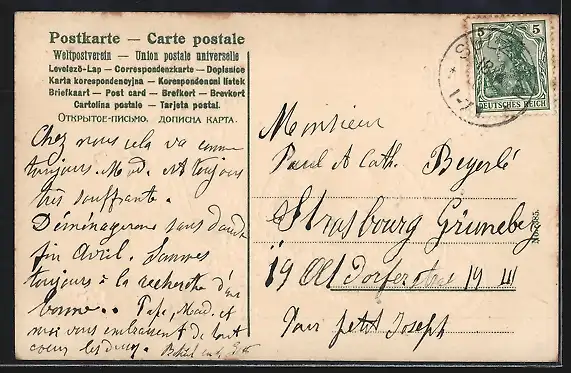 Postkarte — Carte postale
Weltpostverein — Union postale universelle
Levelező-Lap — Correspondenzkarte — Dopisnice
Karta korespondencyjna — Korespondencni listek
Briefkaart — Post card — Brefkort — Brevkort
Cartolina postale — Tarjeta postal.
ОТКРЫТОЕ-ПИСЬМО. ДОПИСНА КАРТА.
Chez nous cela va comme
toujours. Mad. est toujours
très souffrante.
Déménagerons sans doute
fin Avril. Sommes
toujours à la recherche d'une
bonne.. Papa, Mad. et
moi vous embrassent de tout
coeur les deux.
5 5
DEUTSCHES REICH
1-7
Monsieur
Paul A Cath. Beyerlé
Strasbourg Grüneberg
19 19 III
Pour petit Joseph